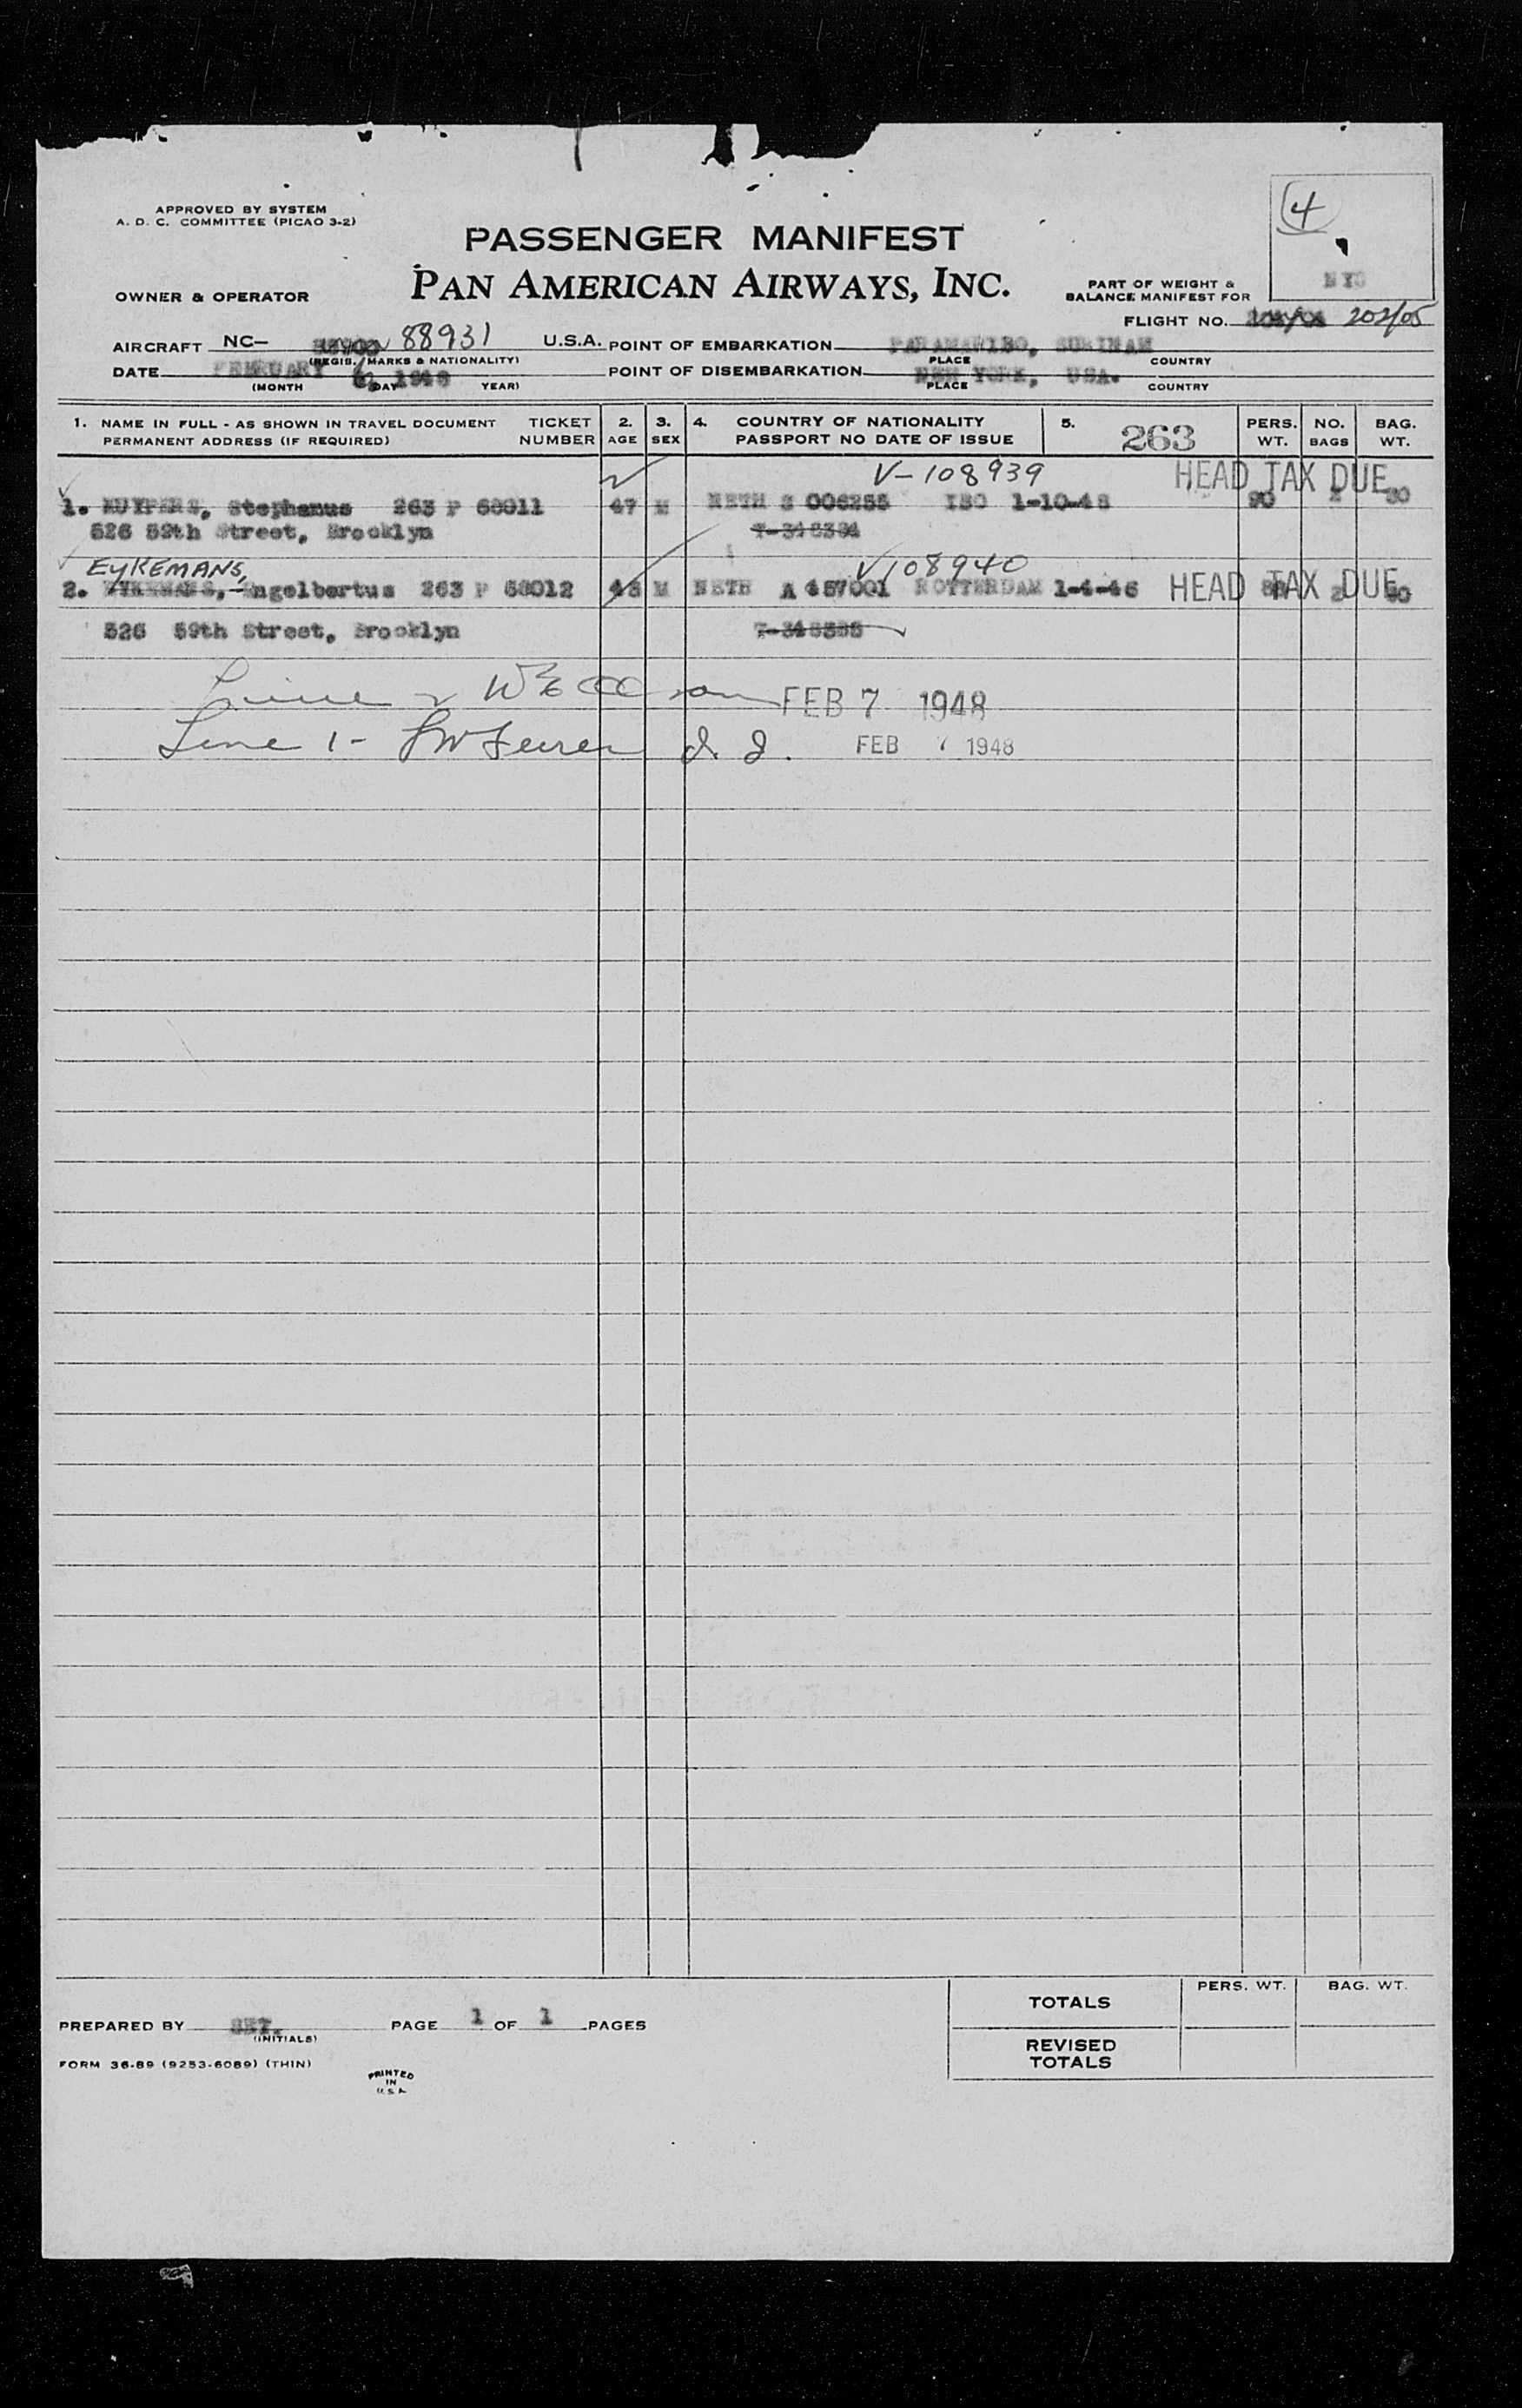 4
APPROVED BY SYSTEM
A. D. C. COMMITTEE (PICAO 3-2)
PASSENGER MANIFEST
PAN AMERICAN AIRWAYS, INC.
OWNER & OPERATOR
PART OF WEIGHT &
BALANCE MANIFEST FOR
NYC
FLIGHT NO. 202/05
AIRCRAFT NC- 88931 U.S.A.
(REGIS. MARKS & NATIONALITY)
POINT OF EMBARKATION PARAMARIBO, SURINAM
PLACE COUNTRY
DATE FEBRUARY 1948
(MONTH DAY YEAR)
POINT OF DISEMBARKATION NEW YORK, USA.
PLACE COUNTRY
1. NAME IN FULL - AS SHOWN IN TRAVEL DOCUMENT
PERMANENT ADDRESS (IF REQUIRED)
TICKET NUMBER
2. AGE
3. SEX
4. COUNTRY OF NATIONALITY
PASSPORT NO DATE OF ISSUE
5. 263
PERS. WT.
NO. BAGS
BAG. WT.
V-108939 HEAD TAX DUE
1. KUYPERS, Stephanus 263 P 68011 47 M NETH S 006255 ISO 1-10-48 90 30
526 59th Street, Brooklyn
EyKEMANS, V108940
2. Engelbertus 263 P 68012 48 M NETH A 457001 ROTTERDAM 1-4-46 HEAD TAX DUE
526 59th Street, Brooklyn
FEB 7 1948
Line 1- FEB 7 1948
PREPARED BY
(INITIALS)
PAGE 1 OF 1 PAGES
TOTALS
PERS. WT. BAG. WT.
REVISED
TOTALS
FORM 36-89 (9253-6089) (THIN)
PRINTED
IN
U.S.A